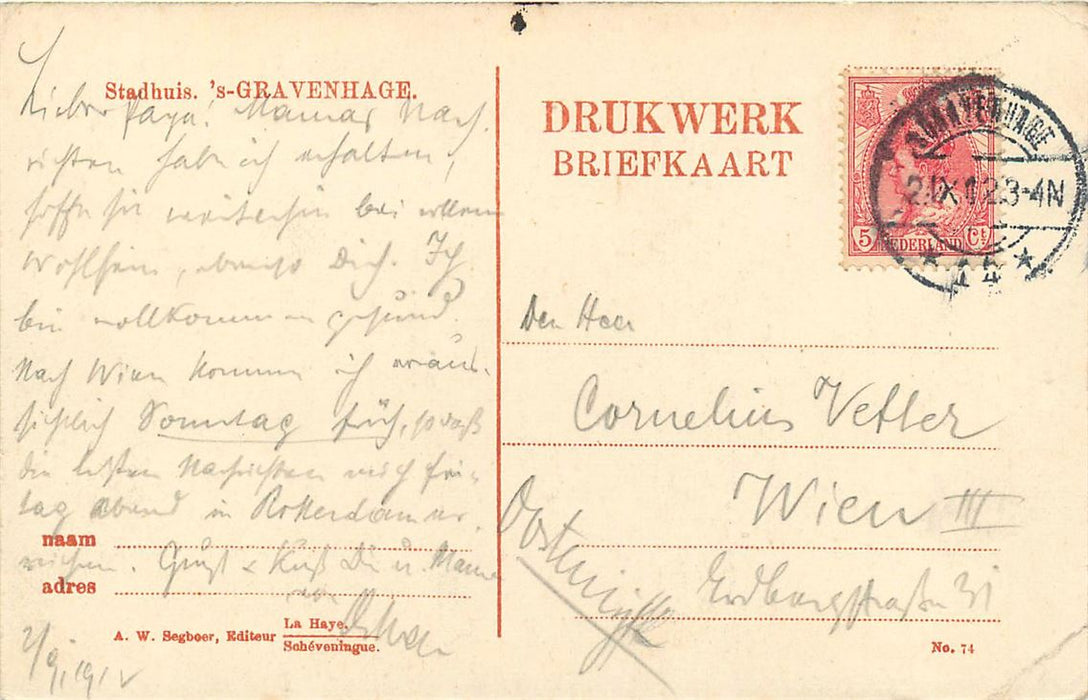 Stadhuis. 's-GRAVENHAGE.
Lieber Papa! Mamas Nach-
richten habe ich erhalten,
hoffe sie weiterhin bei vollem
Wohlsein, ebenso Dich. Ich
bin vollkommen gesund.
Nach Wien komme ich voraus-
sichtlich Sonntag früh, sodaß
die letzten Nachrichten mich Frei-
tag abend in Rotterdam er-
reichen. Gruß & Kuß Dir u. Mama
von Oskar
2/9. 1912
naam
adres
A. W. Segboer, Editeur La Haye.
Schéveningue.
DRUKWERK
BRIEFKAART
5 NEDERLAND Ct
'S GRAVENHAGE
2.IX.12 3-4N
Den Heer
Cornelius Vetter
Wien III
Erdbergstraße 31
Oostenrijk
No. 74